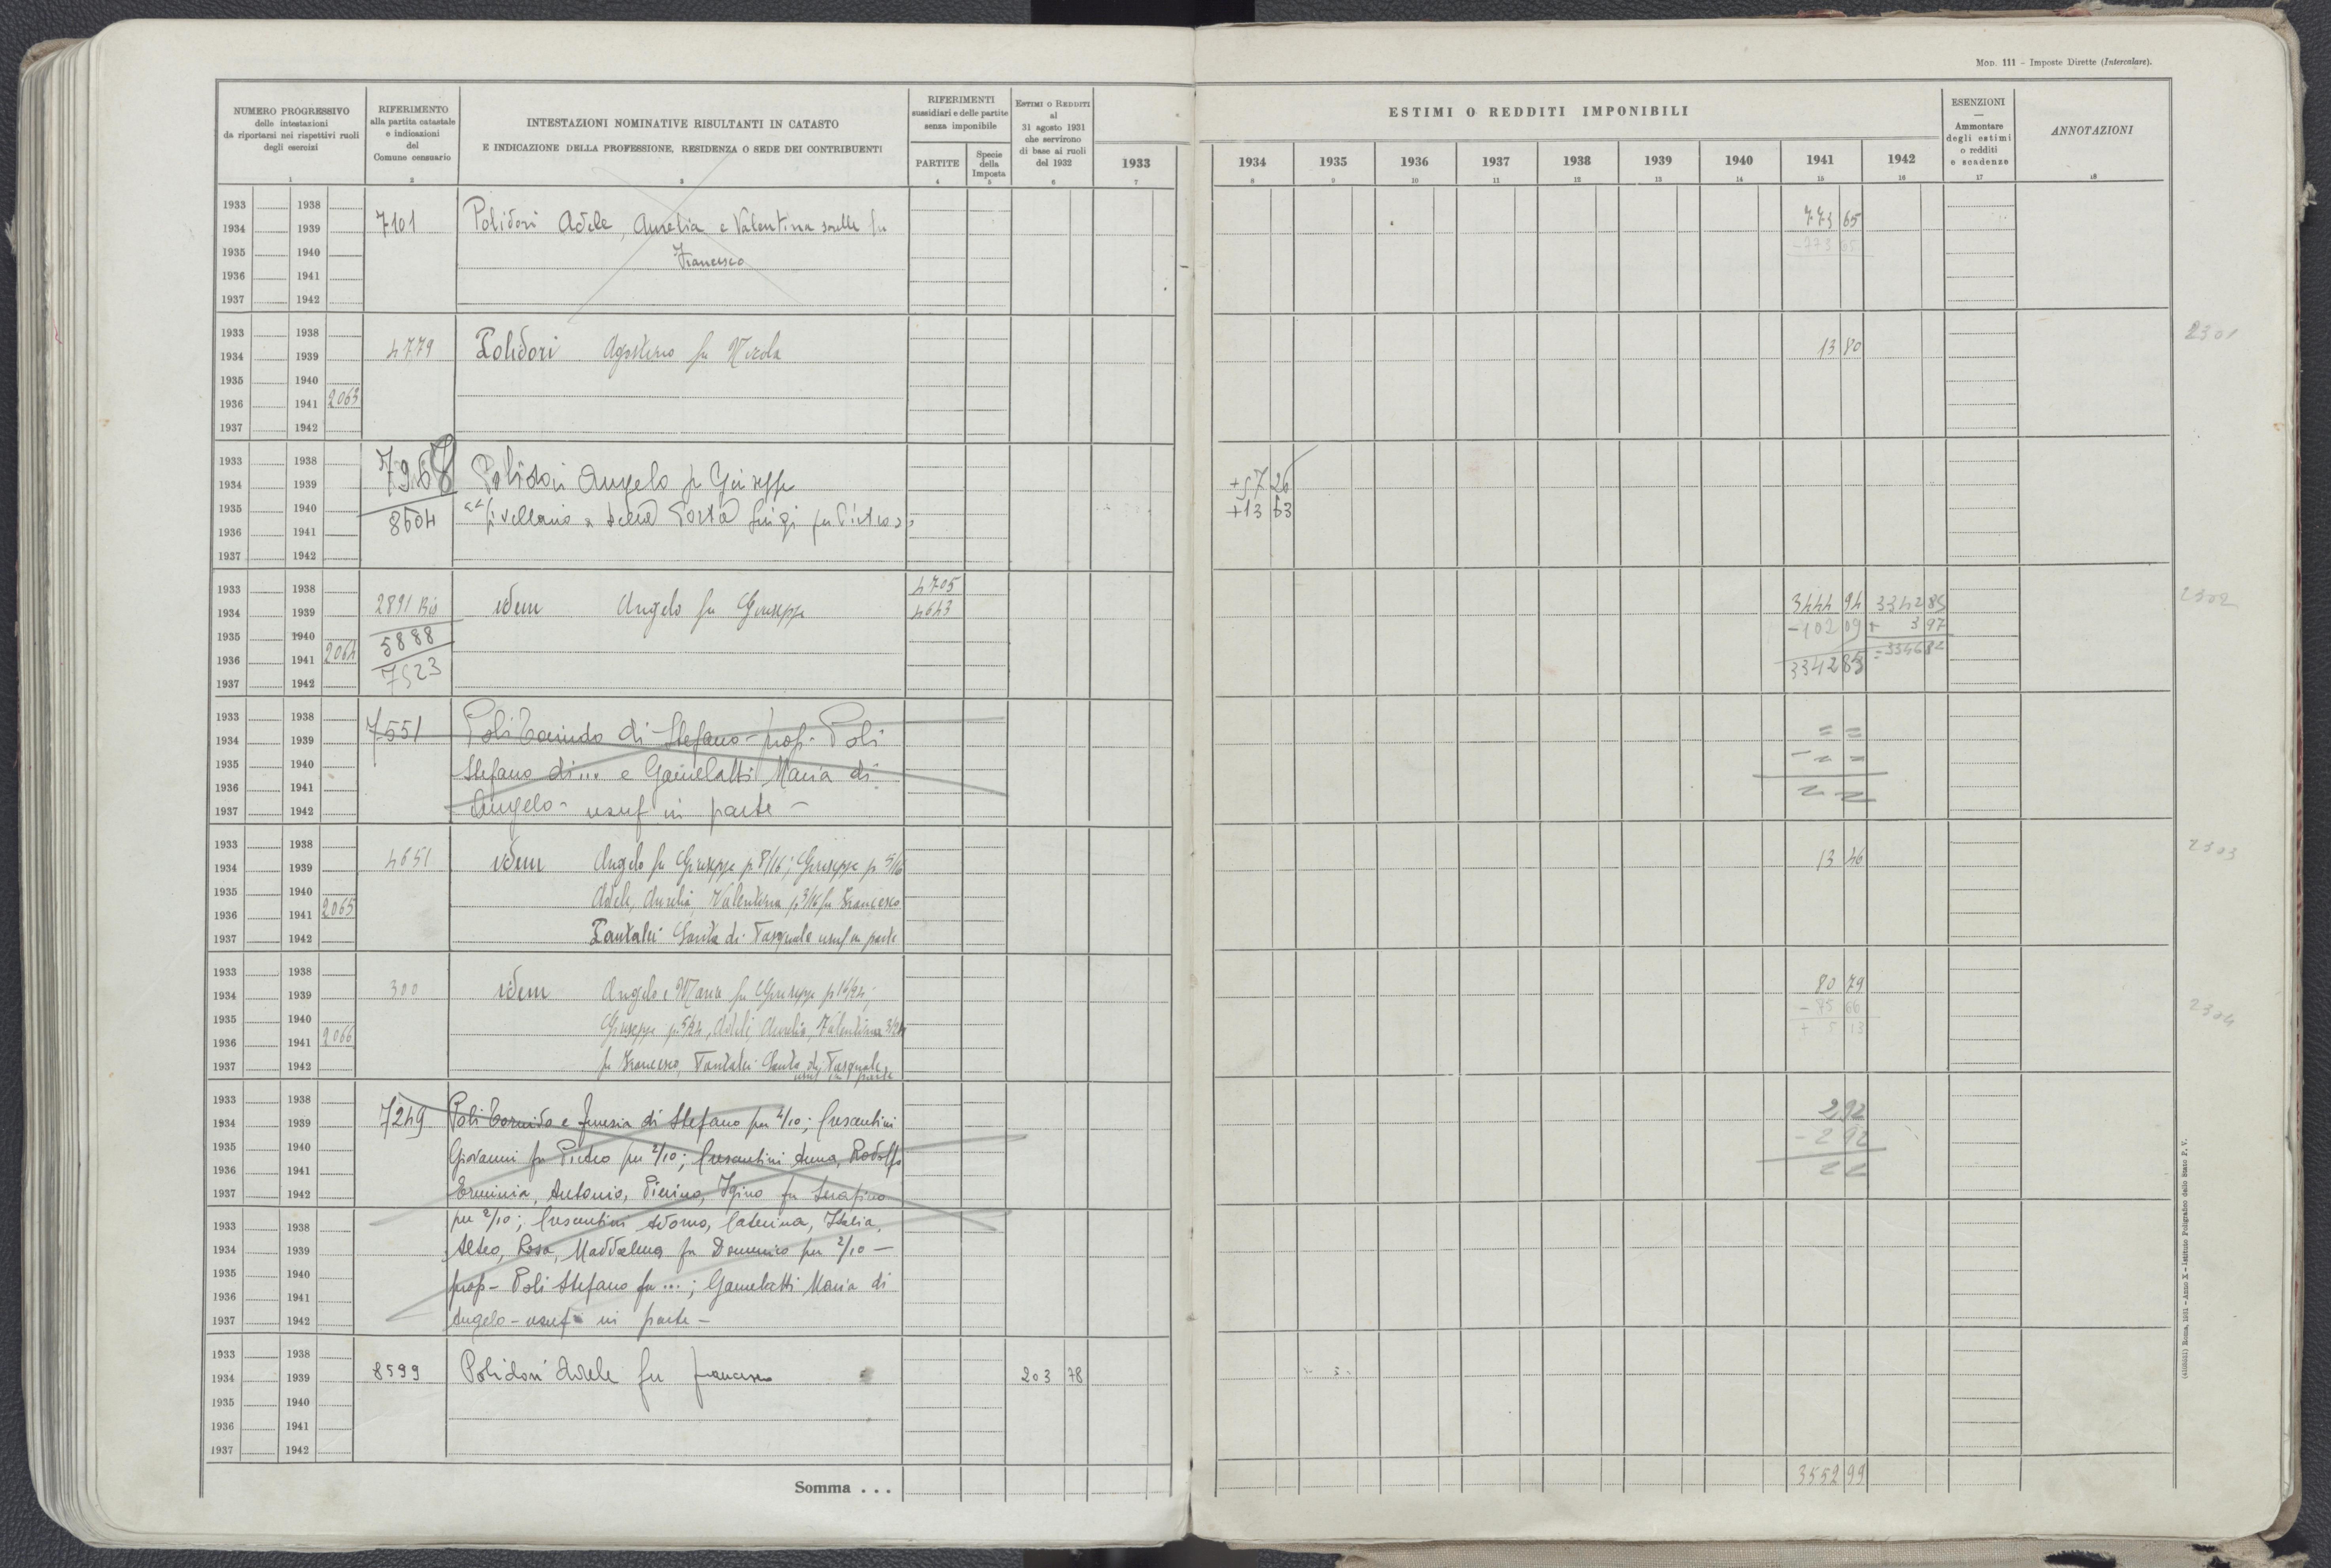 Mod. 111 - Imposte Dirette (Intercalare).
NUMERO PROGRESSIVO
delle intestazioni
da riportarsi nei rispettivi ruoli
degli esercizi
1
RIFERIMENTO
alla partita catastale
e indicazioni
del
Comune censuario
2
INTESTAZIONI NOMINATIVE RISULTANTI IN CATASTO
E INDICAZIONE DELLA PROFESSIONE, RESIDENZA O SEDE DEI CONTRIBUENTI
3
RIFERIMENTI
sussidiari e delle partite
senza imponibile
PARTITE
4
Specie
della
Imposta
5
ESTIMI O REDDITI
al
31 agosto 1931
che servirono
di base ai ruoli
del 1932
6
1933
7
ESTIMI O REDDITI IMPONIBILI
1934 1935 1936 1937 1938 1939 1940 1941 1942
8 9 10 11 12 13 14 15 16
ESENZIONI
—
Ammontare
degli estimi
o redditi
e scadenze
17
ANNOTAZIONI
18
1933 1938
1934 1939 7101 Polidori Adele, Aurelia e Valentina sorelle fu 773 65
Francesco -773 65
1935 1940
1936 1941
1937 1942
1933 1938 2301
1934 1939 4779 Polidori Agostino fu Nicola 13 80
1935 1940
1936 1941 2063
1937 1942
1933 1938
1934 1939 7968 Polidori Angelo fu Giuseppe +57 26
1935 1940 8504 livellario a Della Porta Luigi fu Pietro +13 53
1936 1941
1937 1942
1933 1938 4705
1934 1939 2891 Bis idem Angelo fu Giuseppe 4643 3444 94 3342 85 2302
1935 1940 5888 -102 09 + 3 97
1936 1941 2064 7523 3342 85 =3346 82
1937 1942
1933 1938
1934 1939 7551 Poli Torindo di Stefano - prop. Poli = =
1935 1940 Stefano di ... e Gamelatti Maria di - = =
1936 1941
1937 1942 Angelo - usuf in parte - = =
1933 1938
1934 1939 4651 idem Angelo fu Giuseppe p 8/16; Giuseppe p 5/16 13 46 2303
1935 1940 Adele, Aurelia, Valentina p 3/16 fu Francesco
1936 1941 2065
1937 1942 Pantalei Santa di Pasquale usuf in parte
1933 1938
1934 1939 300 idem Angelo e Maria fu Giuseppe p 16/24; 80 79
1935 1940 Giuseppe p 5/24, Adele, Aurelia, Valentina 3/24 - 85 66 2304
1936 1941 2066 + 5 13
1937 1942 fu Francesco, Pantalei Santa di Pasquale
usuf in parte
1933 1938
1934 1939 7249 Poli Tornido e Ginesia di Stefano per 4/10; Crescentini 2 92
1935 1940 Giovanni fu Pietro per 2/10; Crescentini Anna, Rodolfo - 2 92
1936 1941 = =
1937 1942 Erminia, Antonio, Pierino, Igino fu Serafino
1933 1938 per 2/10; Crescentini Adorno, Caterina, Italia,
1934 1939 Alteo, Rosa, Maddalena fu Domenico per 2/10 -
1935 1940 prop - Poli Stefano fu ...; Gamelatti Maria di
1936 1941
1937 1942 Angelo - usuf in parte -
1933 1938
1934 1939 8599 Polidori Adele fu Francesco 203 78
1935 1940
1936 1941
1937 1942
Somma . . . 3552 99
Roma, 1931 - Anno X - Istituto Poligrafico dello Stato P. V.